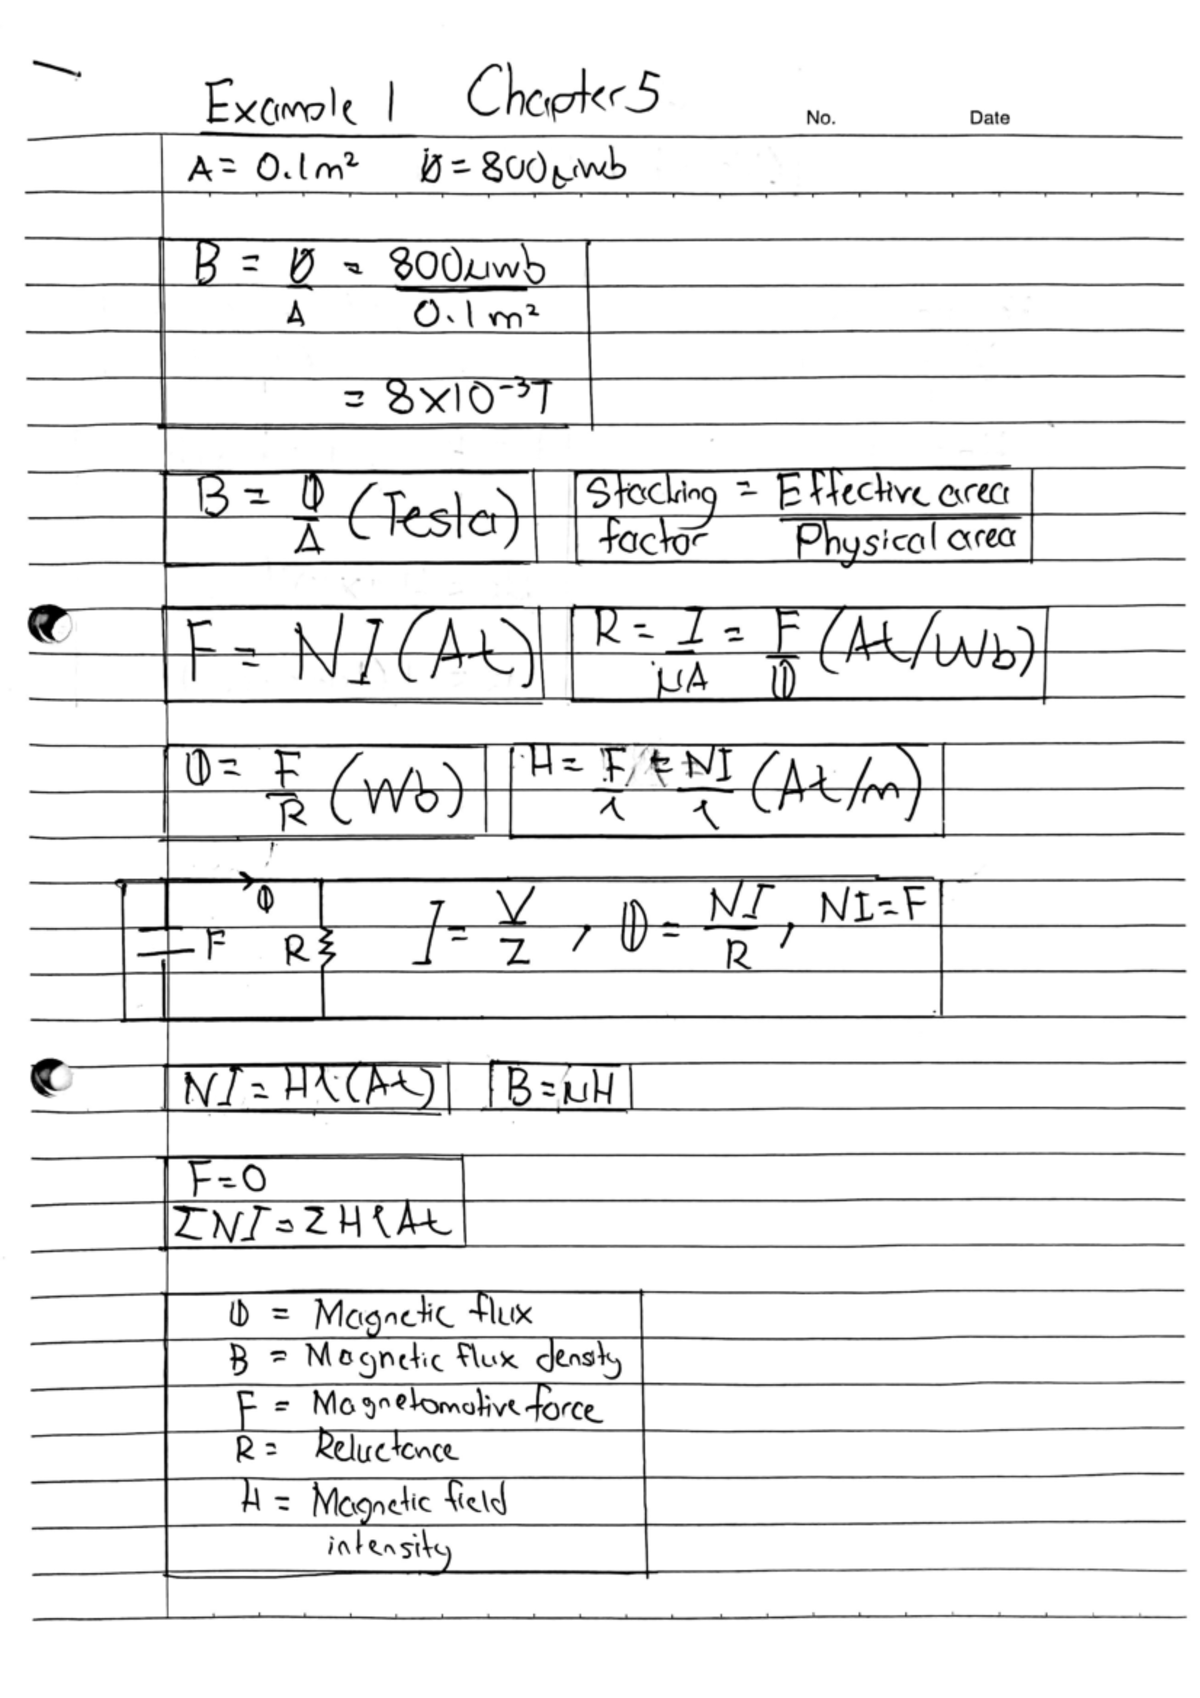 Example 1 Chapter 5
No. Date
A = 0.1m² Φ = 800μwb
B = Φ/A = 800μwb/0.1m²
= 8×10⁻³T
B = Φ/A (Tesla)
Stacking factor = Effective area/Physical area
F = NI (At)
R = I/μA = F/Φ (At/Wb)
Φ = F/R (Wb)
H = F/l = NI/l (At/m)
Φ
F R I = V/Z , Φ = NI/R , NI = F
NI = Hl (At) B = μH
F = 0
ΣNI = ΣHl At
Φ = Magnetic flux
B = Magnetic flux density
F = Magnetomotive force
R = Reluctance
H = Magnetic field
intensity